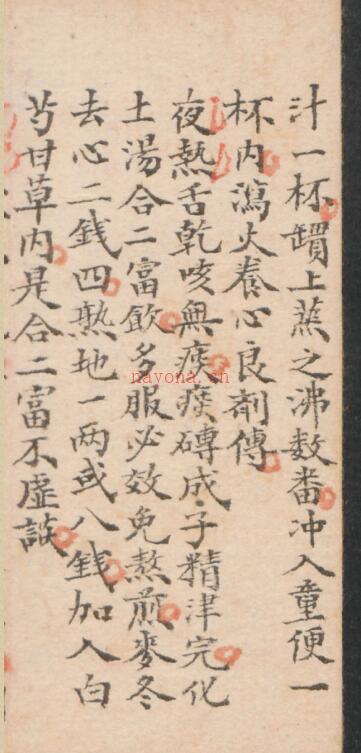 汁一杯鑵上蒸之沸数畨冲入童便一
杯内瀉火養心良剤傳
夜熱舌乾咳無痰痰磚成子精津完化
土湯合二富飲多服必效免熬煎麥冬
去心二錢四熟地一两或八錢加入白
芍甘草内是合二富不虚談
nayona.cn